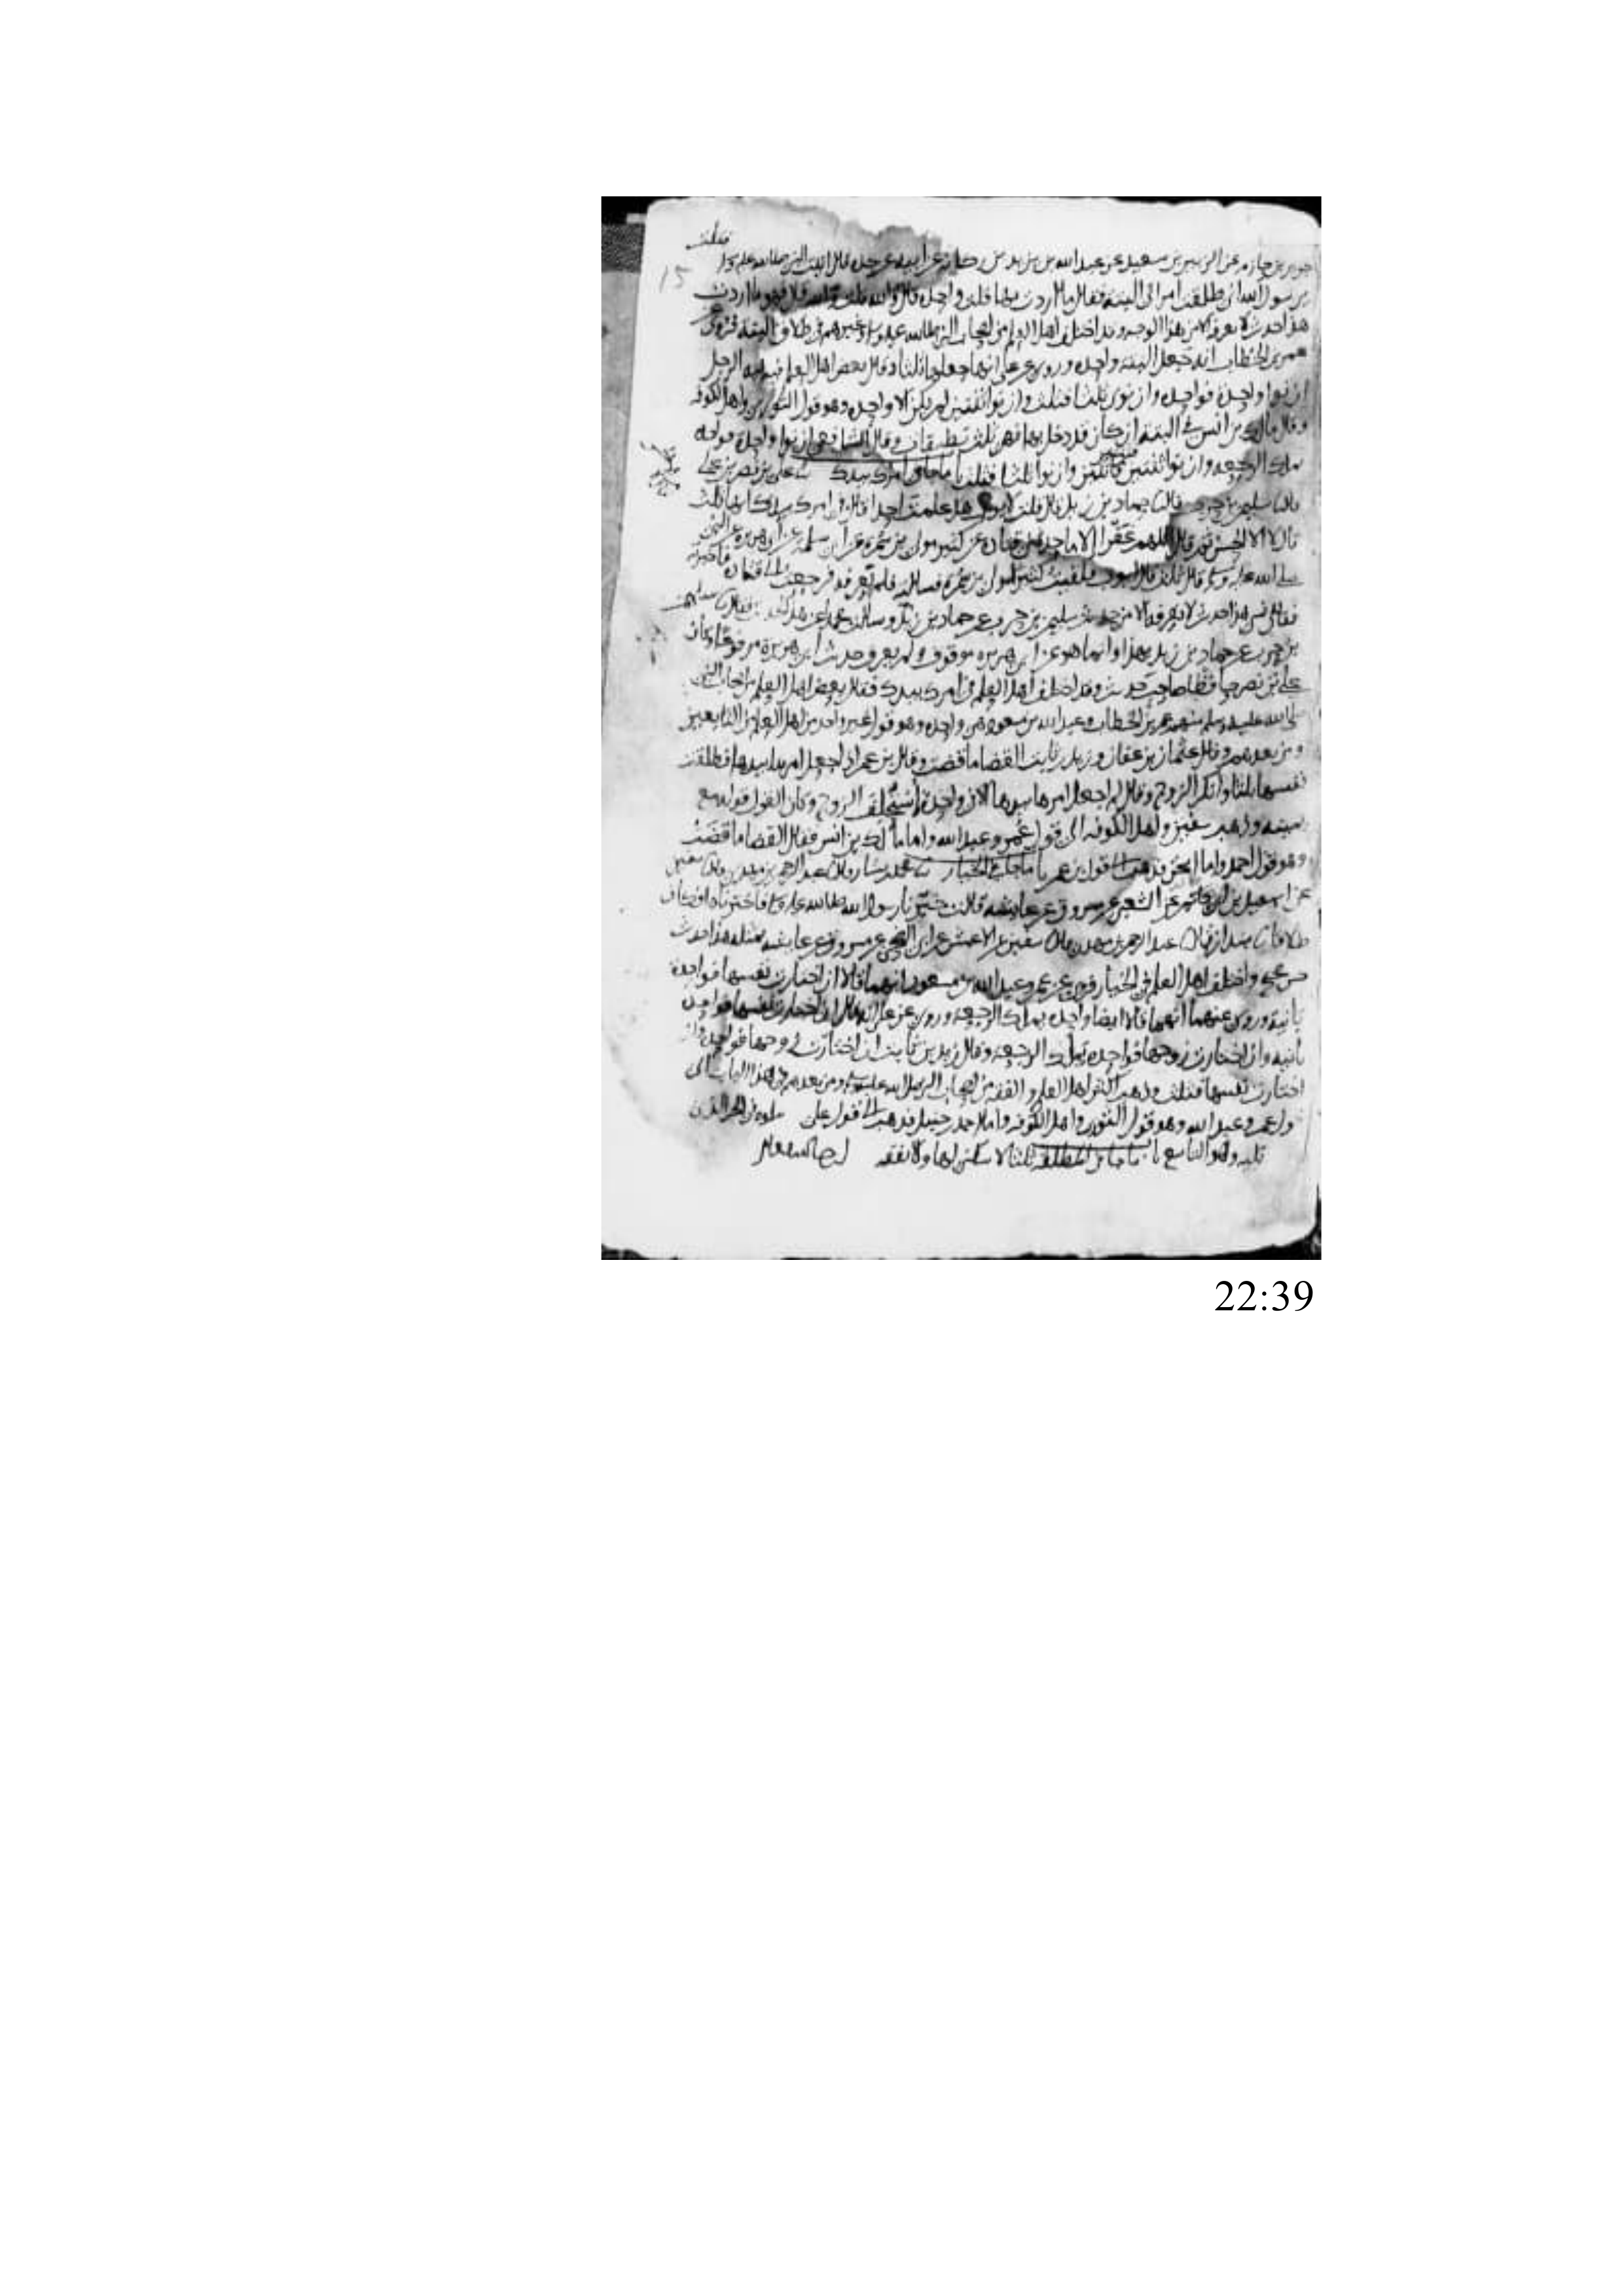 فقلت
جرير بن حازم عن الزبير بن سعيد عن عبد الله بن يزيد بن ركانة عن ابيه عن جده قال اتيت النبي صلى الله عليه وسلم
15
يرسول الله اني طلقت امراتي البتة فقال ما اردت بها قلت واحدة قال والله قلت والله قال فهو ما اردت
هذا حديث لا نعرفه الا من هذا الوجه وقد اختلف اهل العلم من اصحاب النبي صلى الله عليه وسلم وغيرهم في طلاق البتة فروي عن
عمر بن الخطاب انه جعل البتة واحدة وروي عن علي انه جعلها ثلثا وقال بعض اهل العلم فيه نية الرجل
ان نوا واحدة فواحدة وان نوى ثلثا فثلث وان نوا ثنتين لم يكن الا واحدة وهو قول الثوري واهل الكوفه
وقال مالك بن انس في البتة ان كان قد دخل بها فهي ثلث تطليقات وقال الشافعي ان نوا واحدة فواحدة
يملك الرجعه وان نوا ثنتين فثنتين وان نوا ثلثا فثلث باب ما جا في امرك بيدك ثنا علي بن نصر بن علي
قال ثنا سليمن بن حرب قال ثنا حماد بن زيد قال قلت لايوب هل علمت احدا قال في امرك بيدك انها ثلث
قال لا الا الحسن ثم قال اللهم غفرا الا ما حدثني قتادة عن كثير مولى بن سمرة عن ابي سلمة عن ابي هريرة عن النبي
صلى الله عليه وسلم قال ثلث قال ايوب فلقيت كثير مولى بن سمرة فسالته فلم يعرفه فرجعت الى قتادة فاخبرته
فقال نسي هذا حديث لا نعرفه الا من حديث سليمن بن حرب عن حماد بن زيد وسالت محمدا عن هذا فقال ثنا سليمن
بن حرب عن حماد بن زيد بهذا وانما هو عن ابي هريرة موقوف ولم يعرف حديث ابي هريرة مرفوعا وكان
علي بن نصر حافظا صاحب حديث وقد اختلف اهل العلم في امرك بيدك فقال بعض اهل العلم من اصحاب النبي
صلى الله عليه وسلم منهم عمر بن الخطاب وعبد الله بن مسعود هي واحدة وهو قول غير واحد من اهل العلم من التابعين
ومن بعدهم وقال عثمان بن عفان وزيد بن ثابت القضا ما قضت وقال بن عمر اذا جعل امرها بيدها فطلقت
نفسها ثلثا وانكر الزوج وقال لم اجعل امرها بيدها الا في واحدة استحلف الزوج وكان القول قوله مع
يمينه وذهب سفين واهل الكوفه الى قول عمر وعبد الله واما مالك بن انس فقال القضا ما قضت
وهو قول احمد واما اسحق فذهب الى قول ابن عمر باب ما جا في الخيار ثنا محمد بن بشار قال ثنا عبد الرحمن بن مهدي قال ثنا سفين
عن اسمعيل بن ابي خالد عن الشعبي عن مسروق عن عايشة قالت خيرنا رسول الله صلى الله عليه وسلم فاخترناه افكان
طلاقا ثنا بندار قال ثنا عبد الرحمن بن مهدي قال ثنا سفين عن الاعمش عن ابي الضحى عن مسروق عن عايشه بمثله هذا حديث
حسن صحيح واختلف اهل العلم في الخيار فروي عن عمر وعبد الله بن مسعود انهما قالا ان اختارت نفسها فواحدة
باينة وروي عنهما انهما قالا ايضا واحدة يملك الرجعه وروي عن علي انه قال ان اختارت نفسها فواحدة
باينه وان اختارت زوجها فواحدة يملك الرجعه وقال زيد بن ثابت ان اختارت زوجها فواحدة وان
اختارت نفسها فثلث وذهب اكثر اهل العلم والفقه من اصحاب النبي صلى الله عليه وسلم ومن بعدهم في هذا الباب الى
قول عمر وعبد الله وهو قول الثوري واهل الكوفه واما احمد بن حنبل فذهب الى قول علي يتلوه في الجز الذي
يليه وهو التاسع باب ما جا في المطلقة ثلثا لا سكنى لها ولا نفقه
22:39